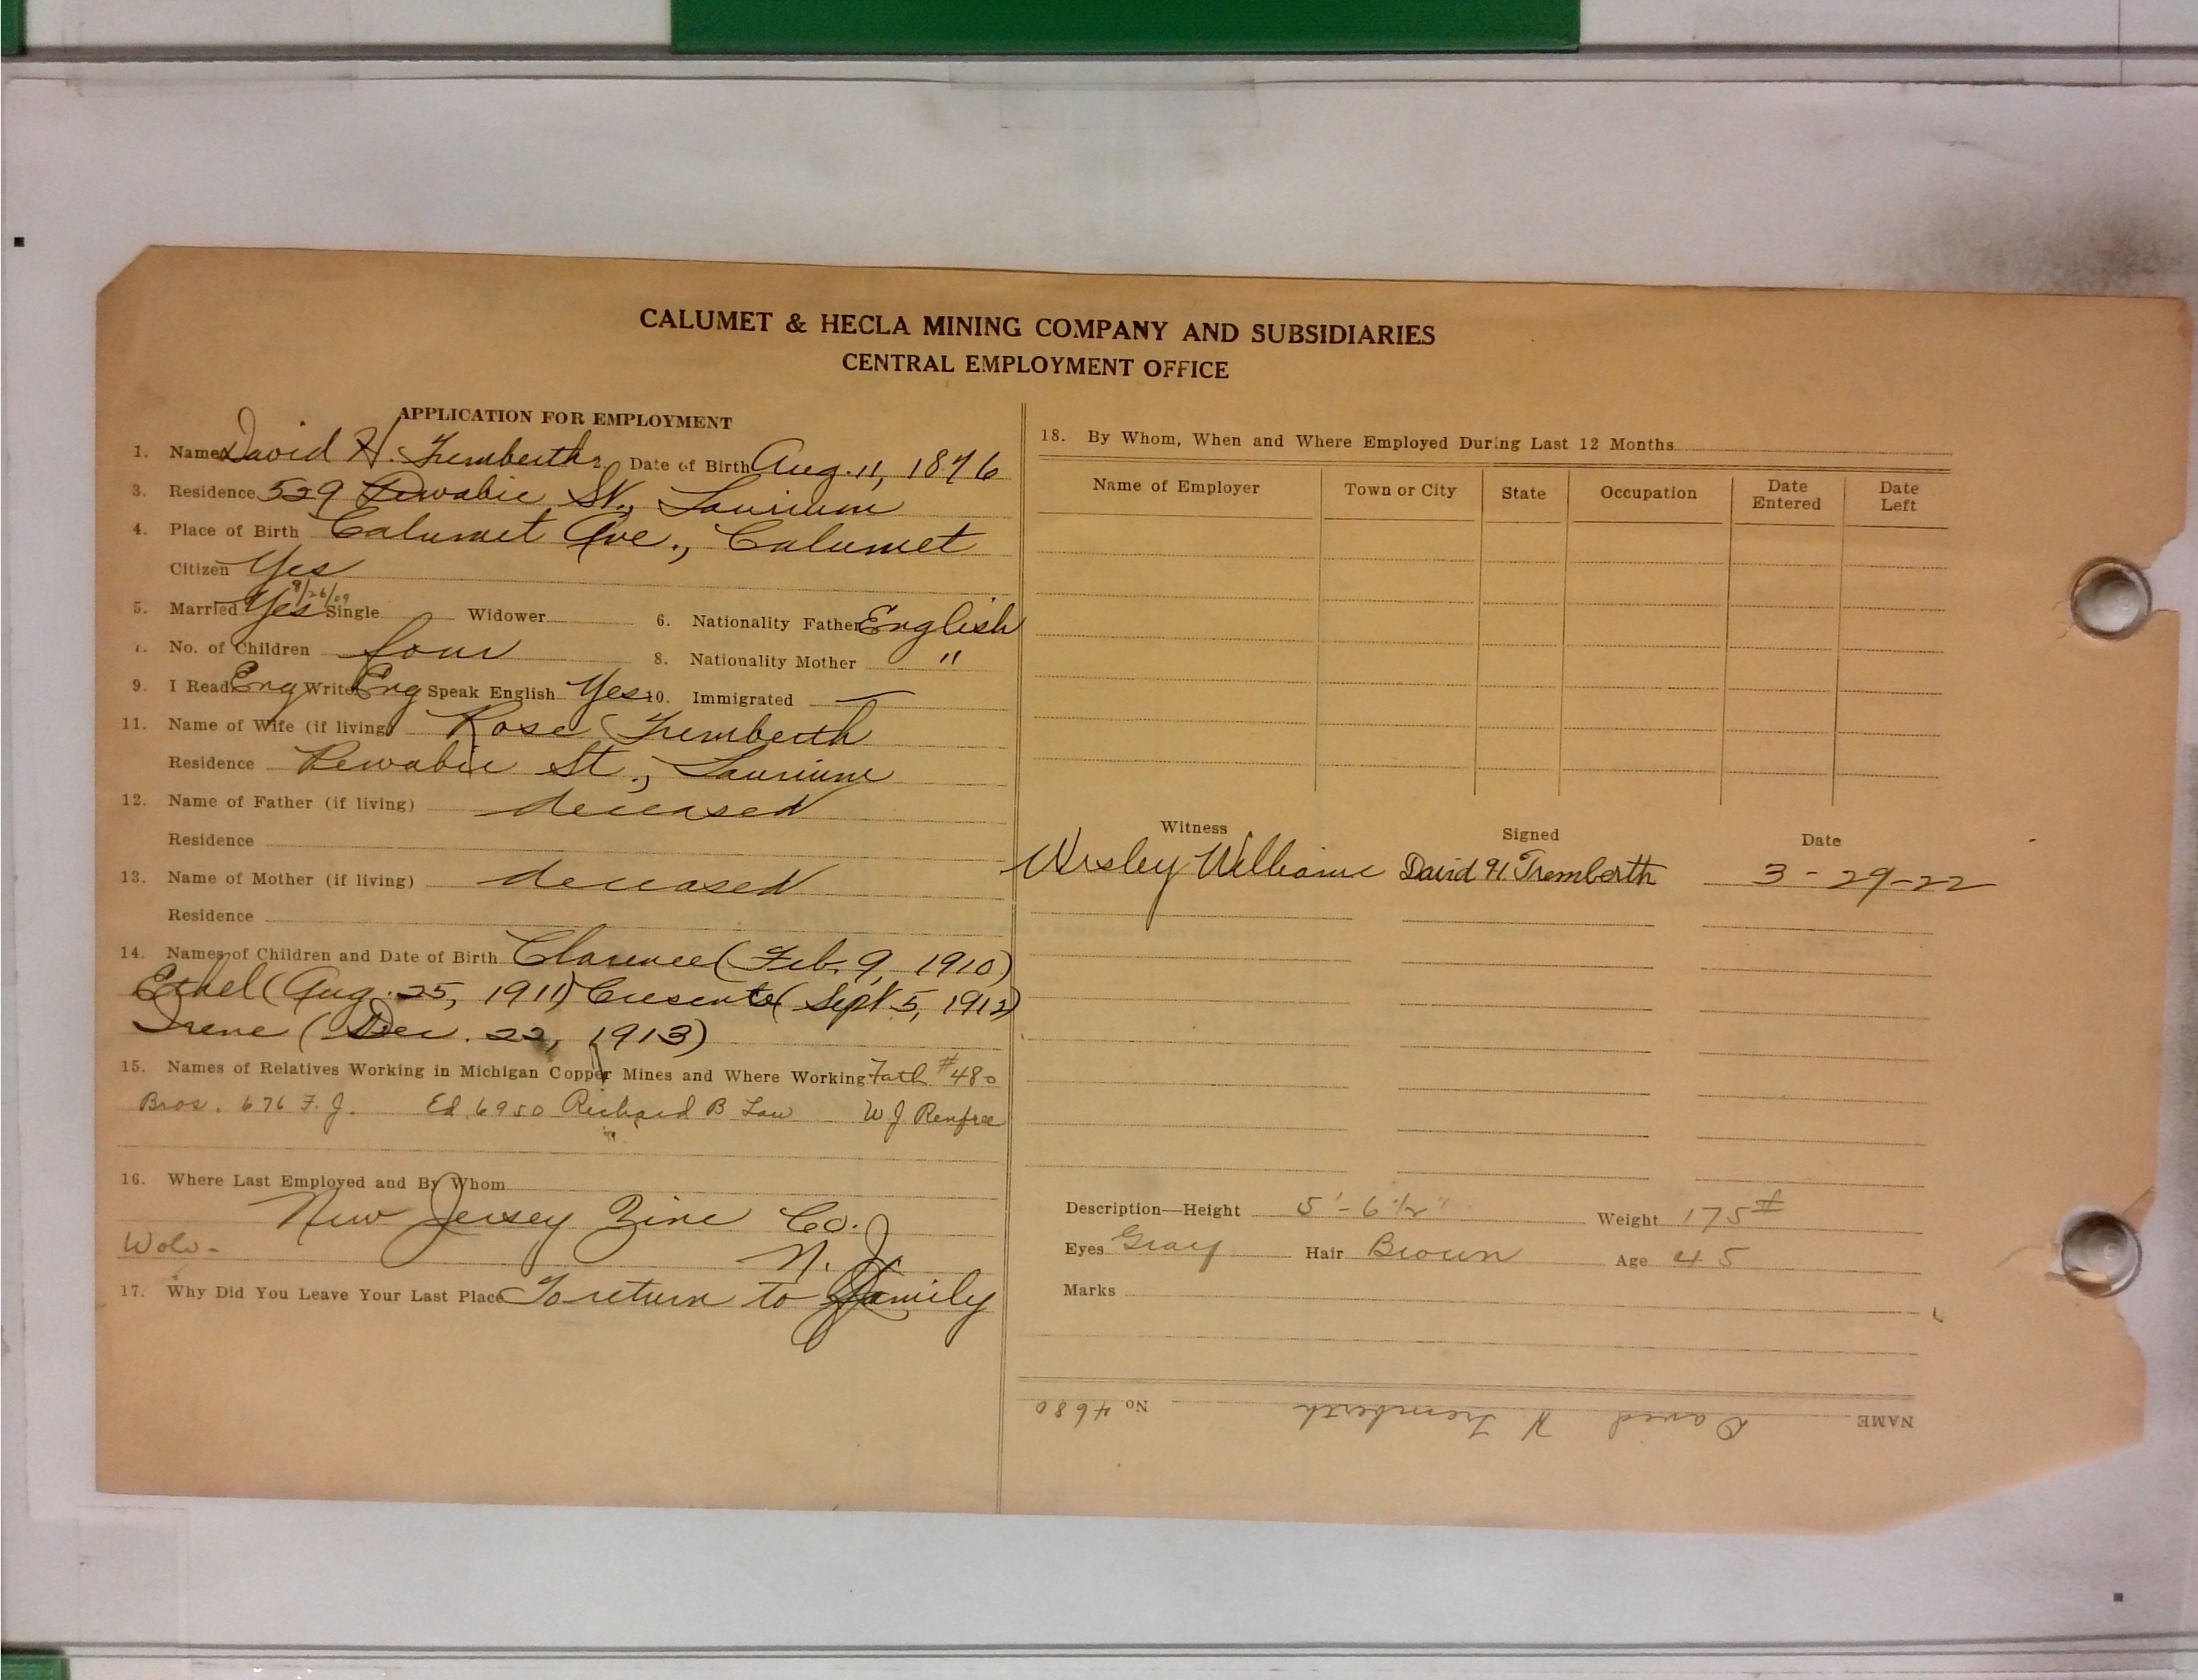 CALUMET & HECLA MINING COMPANY AND SUBSIDIARIES
CENTRAL EMPLOYMENT OFFICE
APPLICATION FOR EMPLOYMENT
1. Name David H. Tremberth 2. Date of Birth Aug. 11, 1876
3. Residence 529 Pewabic St., Laurium
4. Place of Birth Calumet Ave., Calumet
Citizen Yes
5. Married Yes 9/26/09 Single Widower 6. Nationality Father English
7. No. of Children four 8. Nationality Mother "
9. I Read Eng Write Eng Speak English Yes 10. Immigrated —
11. Name of Wife (if living) Rose Tremberth
Residence Pewabic St., Laurium
12. Name of Father (if living) deceased
Residence
13. Name of Mother (if living) deceased
Residence
14. Names of Children and Date of Birth Clarence (Feb. 9, 1910)
Ethel (Aug. 25, 1911) (Sept. 5, 1912)
Irene (Dec. 22, 1913)
15. Names of Relatives Working in Michigan Copper Mines and Where Working Fath #480
Bros. 676 F. J. Ed 6950 Richard B Law W J Renfree
16. Where Last Employed and By Whom
New Jersey Zinc Co.
Wolv- N. J.
17. Why Did You Leave Your Last Place To return to family
18. By Whom, When and Where Employed During Last 12 Months
Name of Employer Town or City State Occupation Date Entered Date Left
Witness Signed Date
Wesley Williams David H. Tremberth 3-29-22
Description—Height 5'-6 1/2" Weight 175#
Eyes Gray Hair Brown Age 45
Marks
NAME David H Tremberth No. 4680